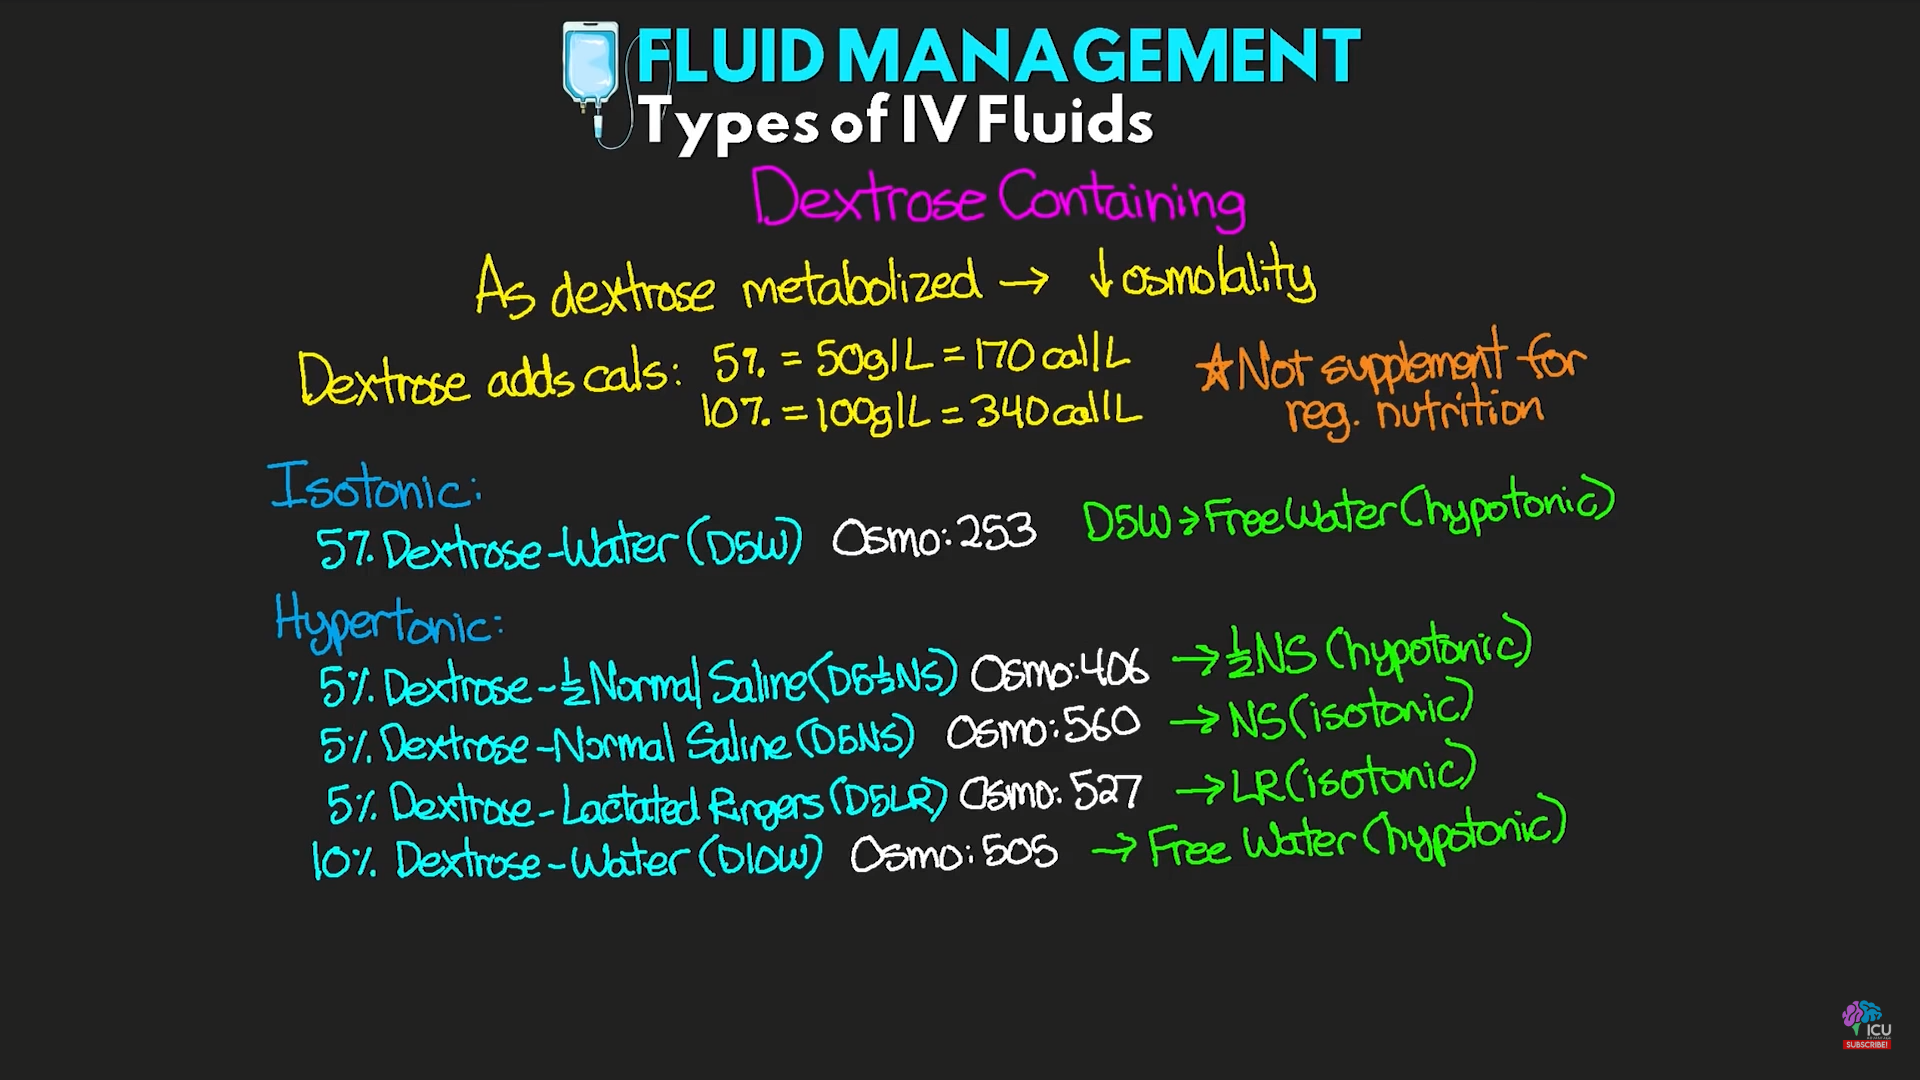 FLUID MANAGEMENT
Types of IV Fluids
Dextrose Containing
As dextrose metabolized → ↓ osmolality
Dextrose adds cals: 5% = 50g/L = 170 cal/L
10% = 100g/L = 340 cal/L
★ Not supplement for
reg. nutrition
Isotonic:
5% Dextrose-Water (D5W) Osmo: 253 D5W → Free Water (hypotonic)
Hypertonic:
5% Dextrose-½ Normal Saline (D5½NS) Osmo: 406 → ½NS (hypotonic)
5% Dextrose-Normal Saline (D5NS) Osmo: 560 → NS (isotonic)
5% Dextrose-Lactated Ringers (D5LR) Osmo: 527 → LR (isotonic)
10% Dextrose-Water (D10W) Osmo: 505 → Free Water (hypotonic)
ICU
SUBSCRIBE!